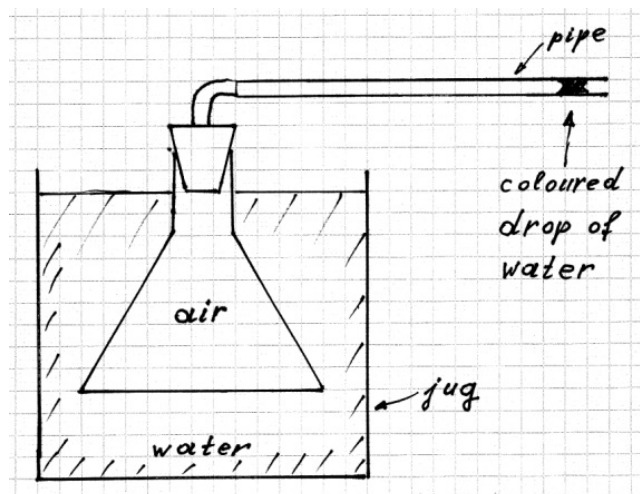 pipe
coloured
drop of
water
air
jug
water